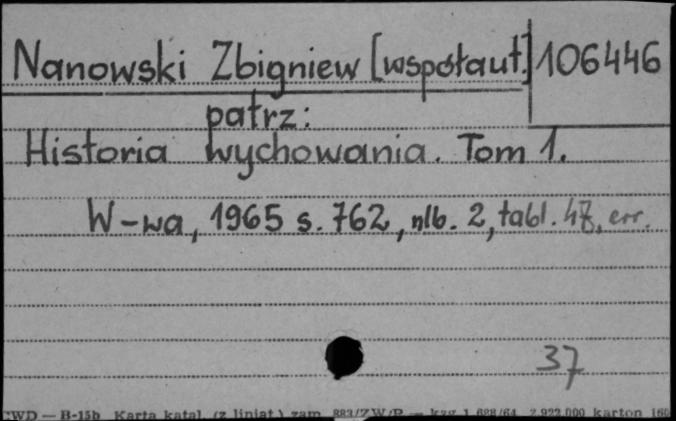 Nanowski Zbigniew [współaut.] 106446
patrz:
Historia wychowania. Tom 1.
W-wa, 1965 s. 762, nlb. 2, tabl. 47, err.
37
CWD — B-15b Karta katal. (z liniat.) zam. 883/ZW/P — kzg 1 688/64 2.922.000 karton 160